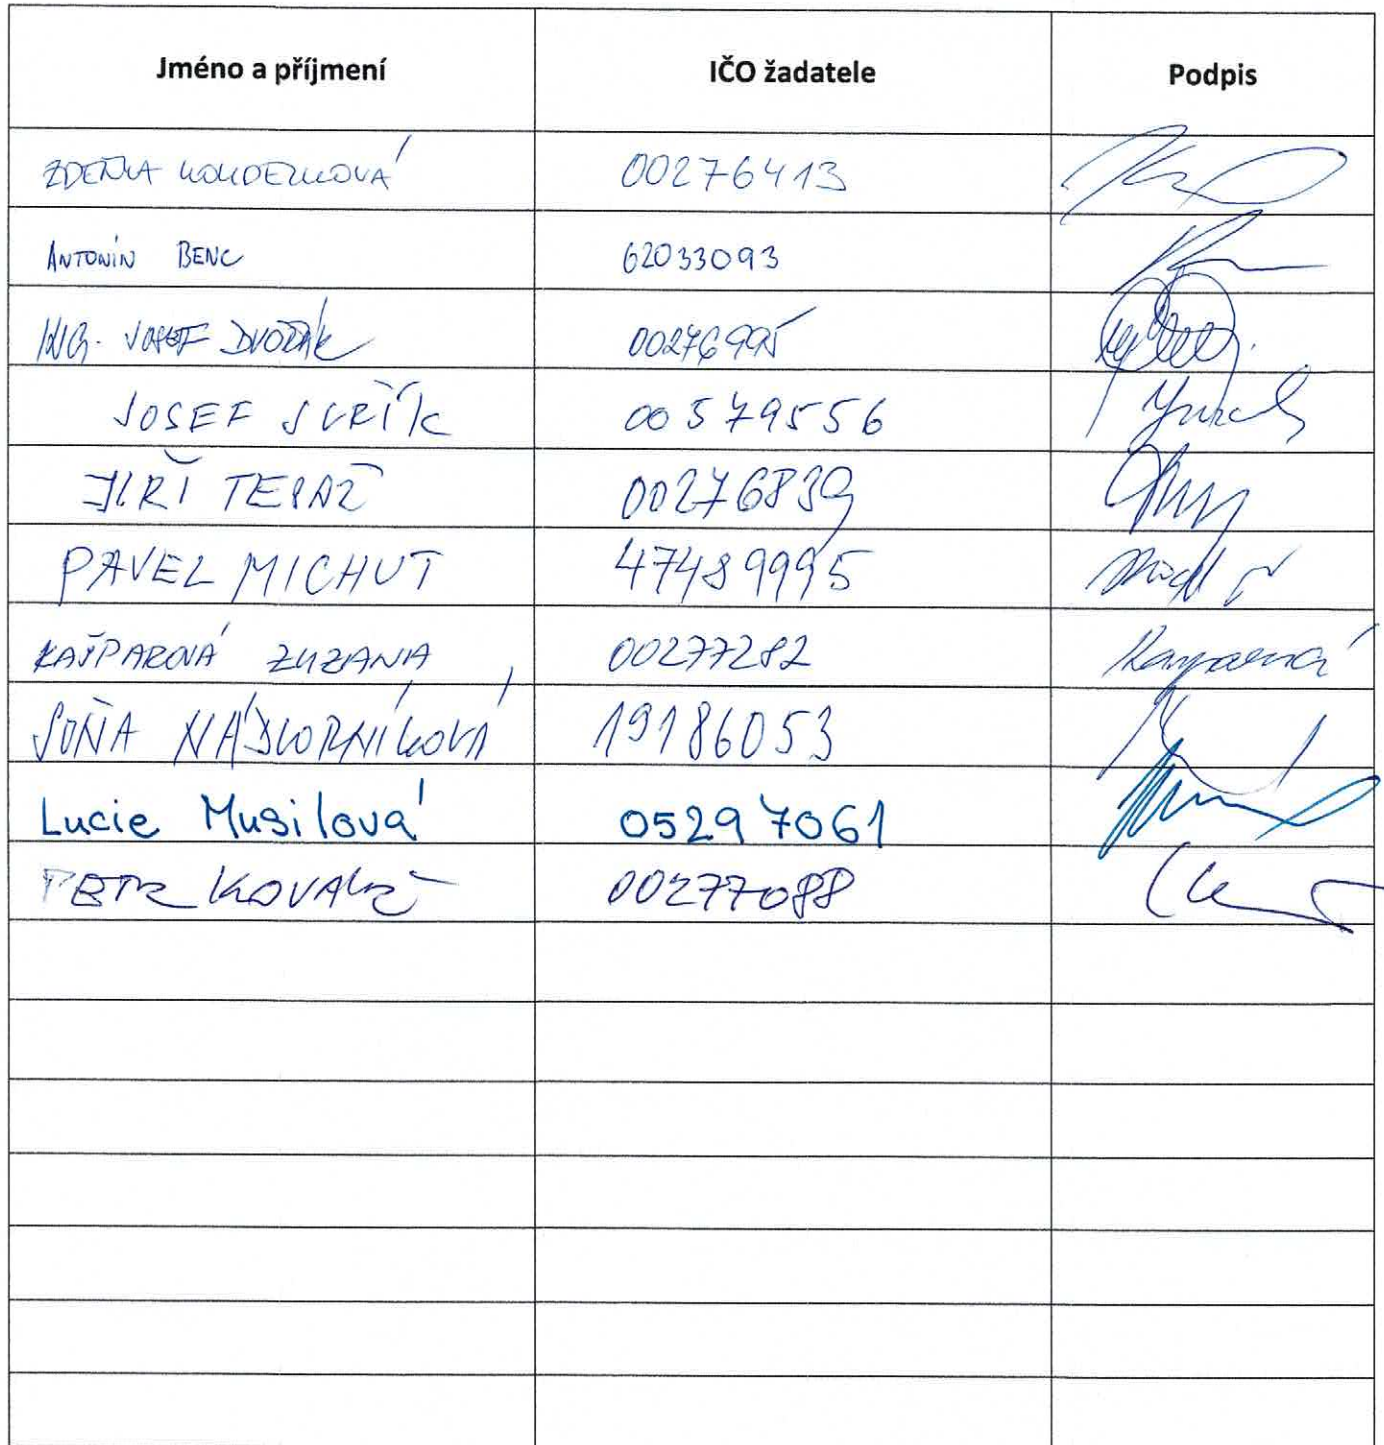 Jméno a příjmení IČO žadatele Podpis
ZDEŇKA 00276413
ANTONÍN BENC 62033093
ING. JOSEF DVOŘÁK 00276995
JOSEF 00579556
JIŘÍ 00276839
PAVEL MICHUT 47489995
KAŠPAROVÁ ZUZANA 00277282
SOŇA NÁDVORNÍKOVÁ 19186053
Lucie Musilová 05297061
PETR KOVALČ 00277088